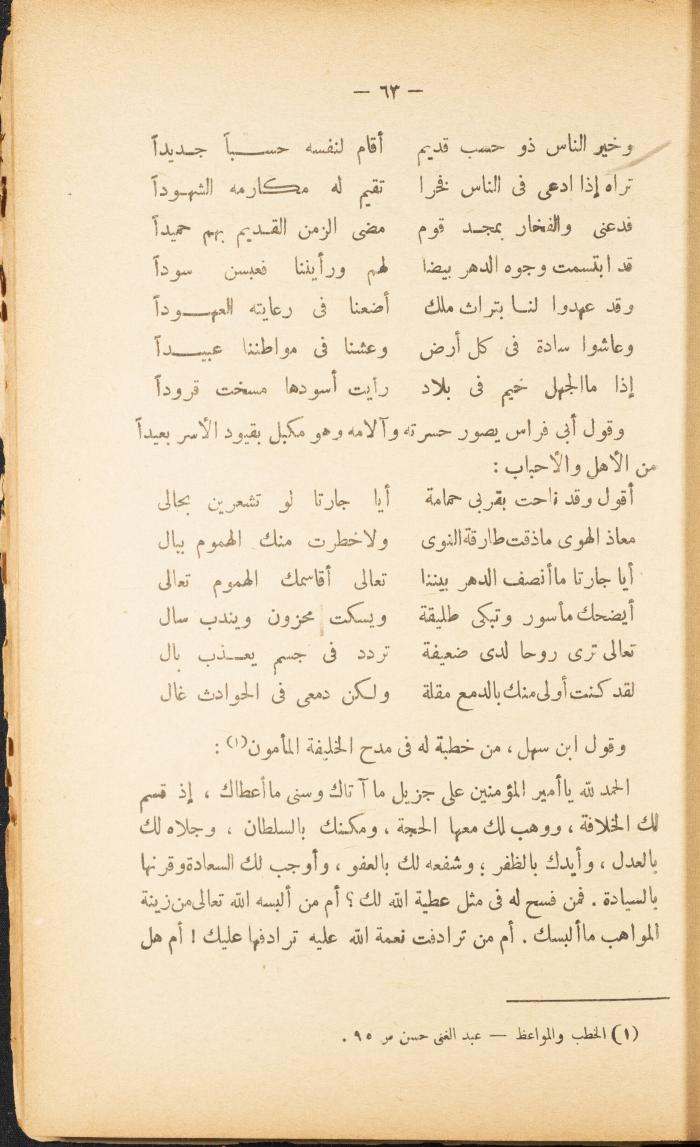 — ٦٣ —
وخير الناس ذو حسب قديم أقام لنفسه حسبا جديداً
تراه إذا ادعى فى الناس فخرا تقيم له مكارمه الشهوداً
فدعنى والفخار بمجد قوم مضى الزمن القديم بهم حميداً
قد ابتسمت وجوه الدهر بيضا لهم ورأيننا فعبسن سوداً
وقد عهدوا لنا بتراث ملك أضعنا فى رعايته العهوداً
وعاشوا سادة فى كل أرض وعشنا فى مواطننا عبيداً
إذا ماالجهل خيم فى بلاد رأيت أسودها مسخت قروداً
وقول أبى فراس يصور حسرته وآلامه وهو مكبل بقيود الأسر بعيداً
من الأهل والأحباب :
أقول وقد ناحت بقربى حمامة أيا جارتا لو تشعرين بحالى
معاذ الهوى ماذقت طارقة النوى ولا خطرت منك الهموم ببال
أيا جارتا ماأنصف الدهر بيننا تعالى أقاسمك الهموم تعالى
أيضحك مأسور وتبكى طليقة ويسكت محزون ويندب سال
تعالى ترى روحا لدى ضعيفة تردد فى جسم يعذب بال
لقد كنت أولى منك بالدمع مقلة ولكن دمعى فى الحوادث غال
وقول ابن سهل ، من خطبة له فى مدح الخليفة المأمون(١) :
الحمد لله ياأمير المؤمنين على جزيل ما آتاك وسنى ماأعطاك ، إذ قسم
لك الخلافة ، ووهب لك معها الحجة ، ومكنك بالسلطان ، وجلاه لك
بالعدل ، وأيدك بالظفر ؛ وشفعه لك بالعفو ، وأوجب لك السعادة وقرنها
بالسيادة . فمن فسح له فى مثل عطية الله لك ؟ أم من ألبسه الله تعالى من زينة
المواهب ماألبسك . أم من ترادفت نعمة الله عليه ترادفها عليك ! أم هل
(١) الخطب والمواعظ — عبد الغنى حسن ص ٩٥ .